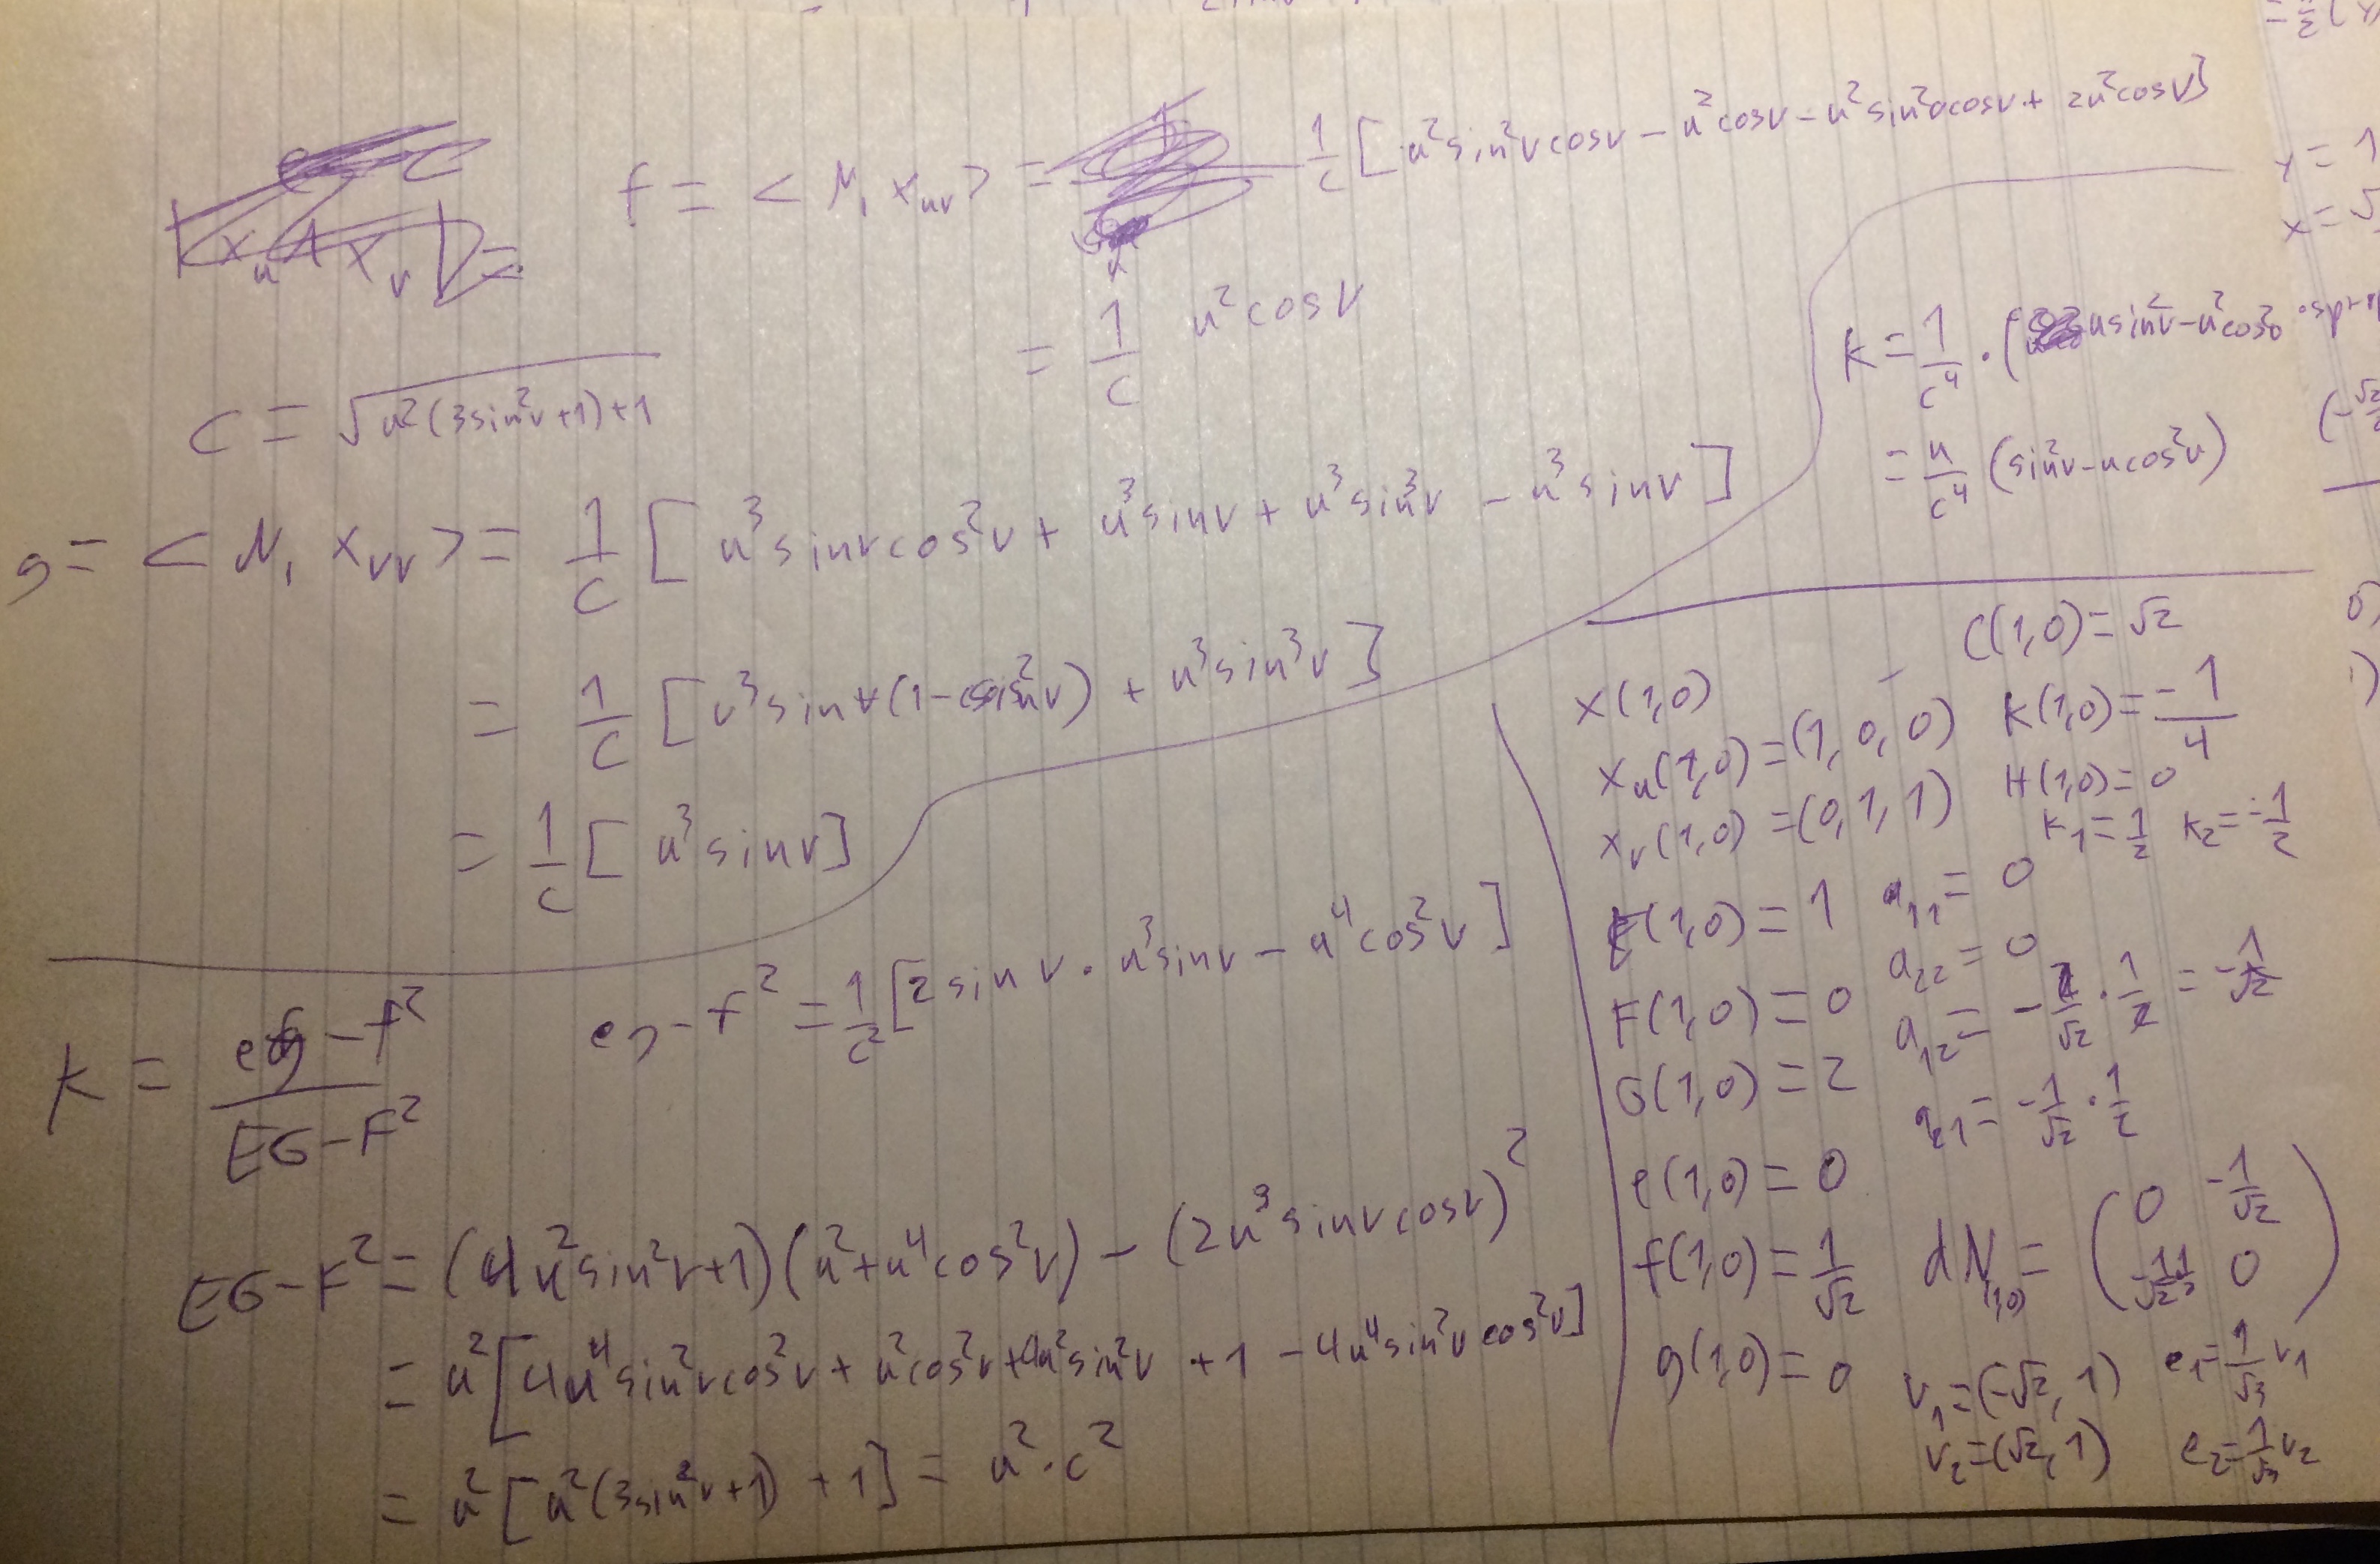 f = < N, x_uv > = 1/c [u² sin²v cosv − u² cosv − u² sin²v cosv + 2u² cosv]
= 1/c u² cosv
|x_u ∧ x_v| =
c = √(u²(3sin²v+1)+1)
g = < N, x_vv > = 1/c [u³ sinv cos²v + u³ sinv + u³ sin³v − u³ sinv]
= 1/c [u³ sinv (1−sin²v) + u³ sin³v]
= 1/c [u³ sinv]
y = 1
x = √
K = 1/c⁴ · (u sin²v − u² cos²v
= u/c⁴ (sin²v − u cos²v)
K = (eg − f²)/(EG − F²)
eg − f² = 1/c² [2 sin v · u³ sinv − u⁴ cos²v]
EG − F² = (4u² sin²v+1)(u²+u⁴ cos²v) − (2u³ sinv cosv)²
= u² [4u⁴ sin²v cos²v + u² cos²v + 4u² sin²v + 1 − 4u⁴ sin²v cos²v]
= u² [u²(3sin²v+1) + 1] = u² · c²
x(1,0)
x_u(1,0) = (1, 0, 0)
x_v(1,0) = (0, 1, 1)
E(1,0) = 1
F(1,0) = 0
G(1,0) = 2
e(1,0) = 0
f(1,0) = 1/√2
g(1,0) = 0
C(1,0) = √2
K(1,0) = −1/4
H(1,0) = 0
k₁ = 1/2 k₂ = −1/2
a₁₁ = 0
a₂₂ = 0
a₁₂ = −2/√2 · 1/2 = −1/√2
a₂₁ = −1/√2 · 1/2
dN_(1,0) = ( 0 −1/√2
−1/√2 1/2 0 )
v₁ = (−√2, 1) e₁ = 1/√3 v₁
v₂ = (√2, 1) e₂ = 1/√3 v₂